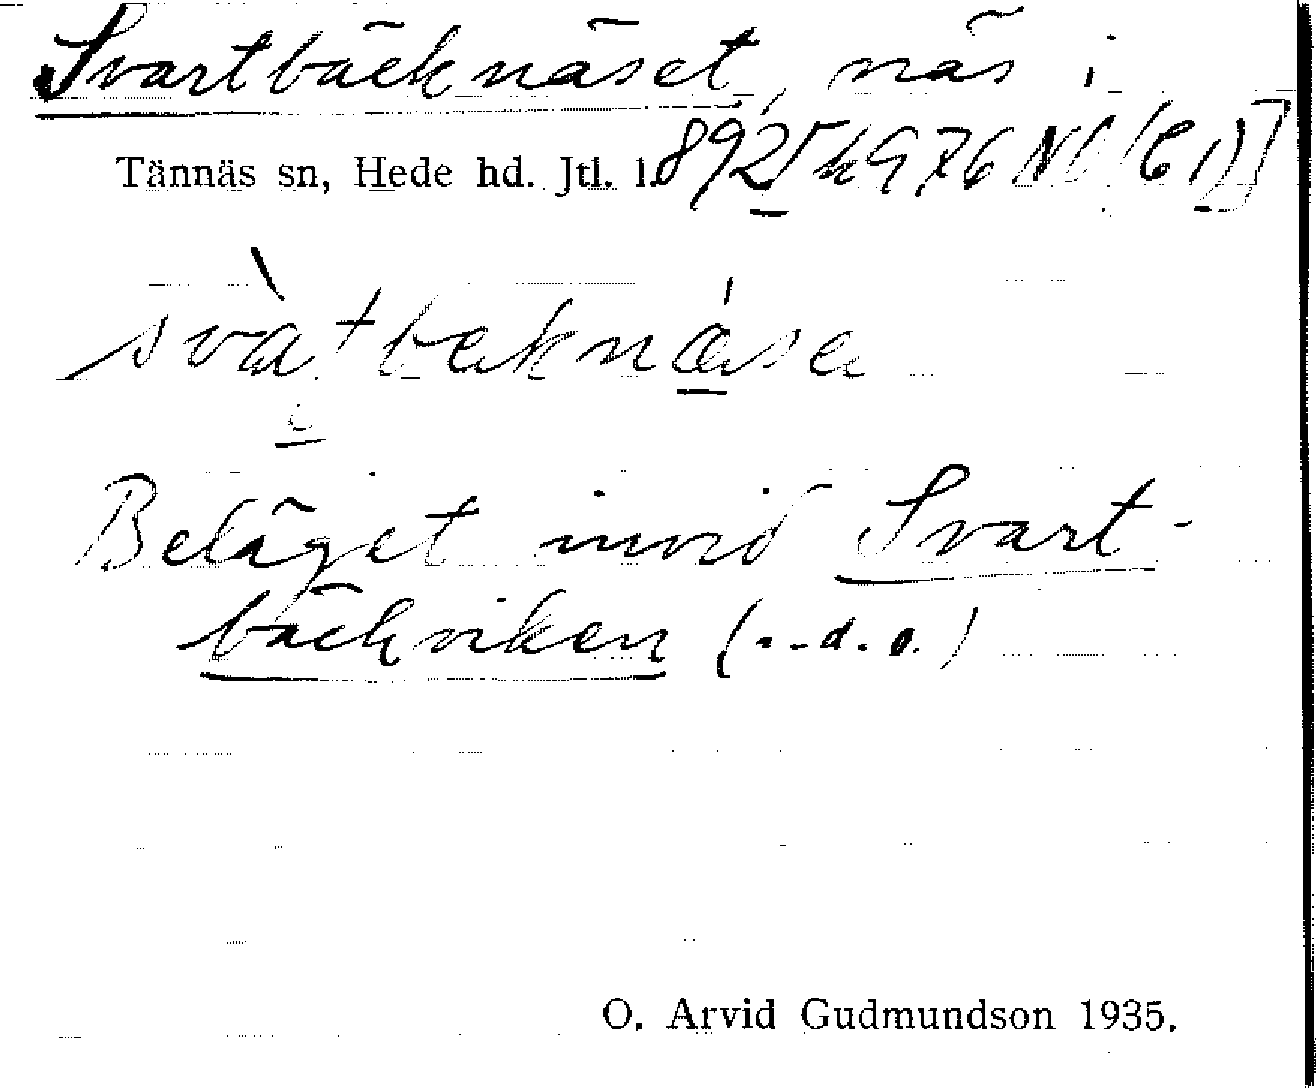 Svartbäcknäset, näs i
Tännäs sn, Hede hd. Jtl. l.
svàtbeknæse
Beläget invid Svart-
bäckviken (s.d.o.)
O. Arvid Gudmundson 1935.